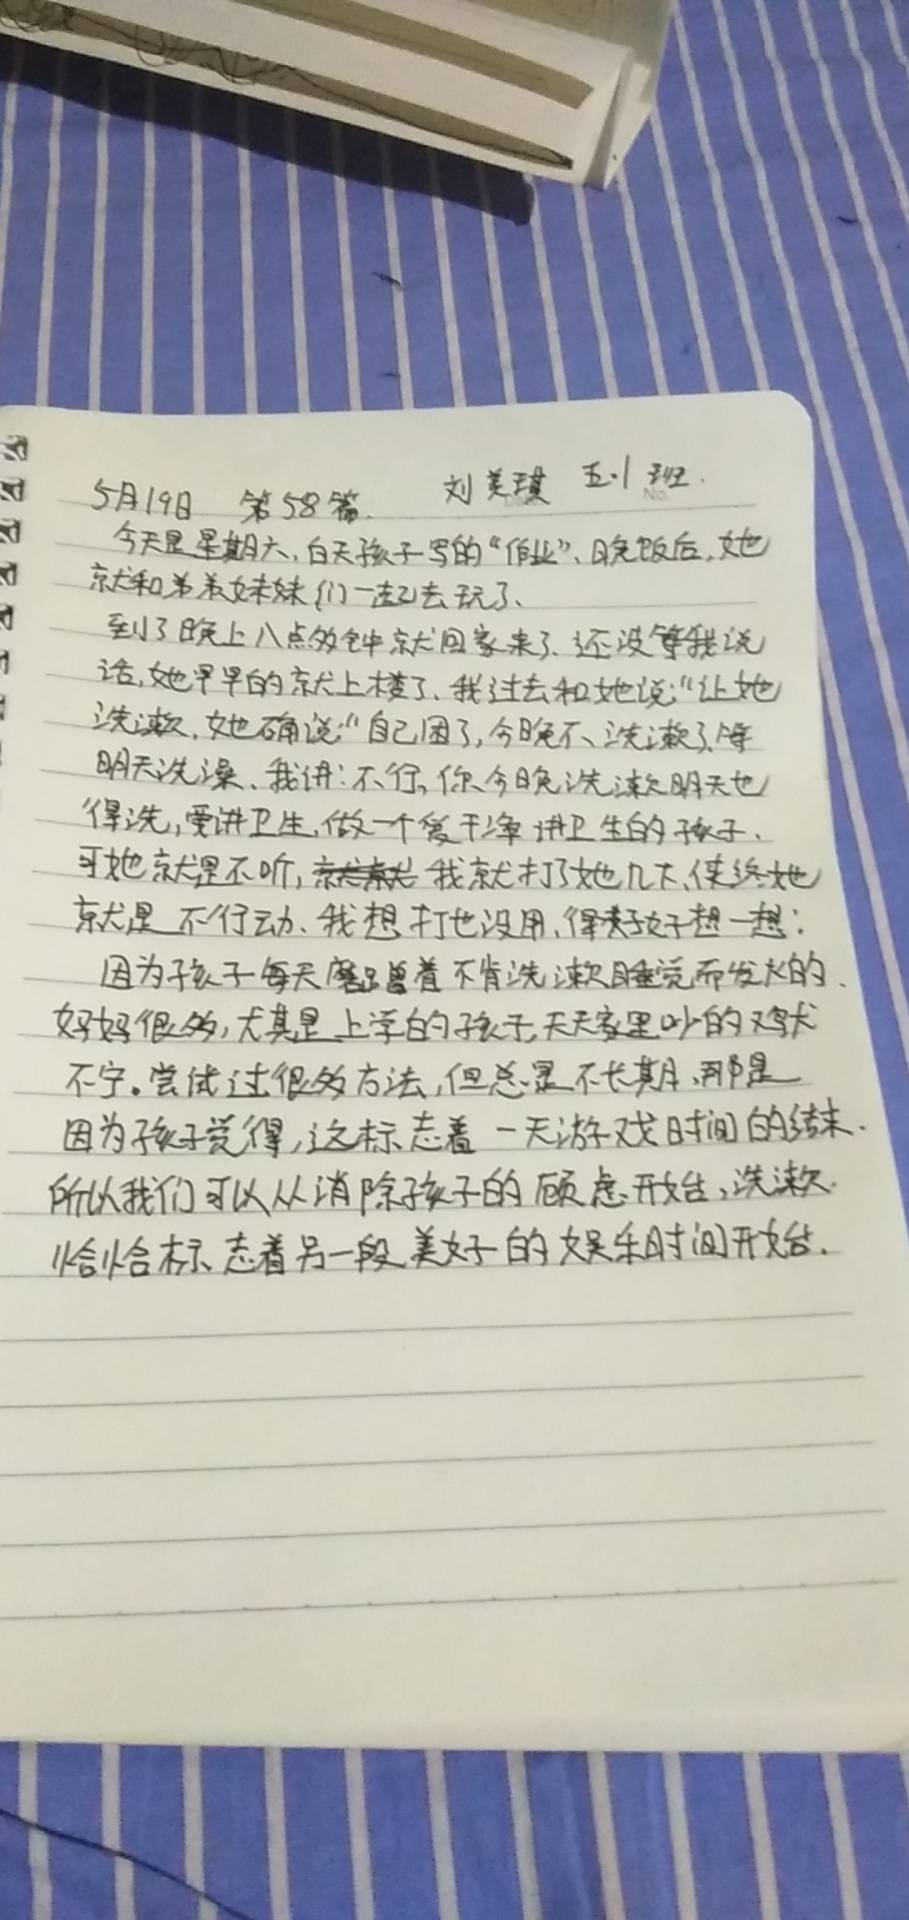 5月19日 第58篇. 刘美琪 五.1班.
No.
今天是星期六,白天孩子写的“作业”、晚饭后,她
就和弟弟妹妹们一起去玩了、
到了晚上八点多钟就回家来了、还没等我说
话,她早早的就上楼了、我过去和她说:“让她
洗漱,她确说:“自己困了,今晚不、洗漱了,等
明天洗澡、我讲:不行,你今晚洗漱明天也
得洗,要讲卫生,做一个爱干净讲卫生的孩子、
可她就是不听,我就打了她几下,使终她
就是不行动、我想打也没用,得好好想一想:
因为孩子每天磨蹭着不肯洗漱睡觉而发火的、
妈妈很多,尤其是上学的孩子,天天家里吵的鸡犬
不宁。尝试过很多方法,但总是不长期,那是
因为孩子觉得,这标志着一天游戏时间的结束.
所以我们可以从消除孩子的顾虑开始,洗漱.
恰恰标志着另一段美好的娱乐时间开始.